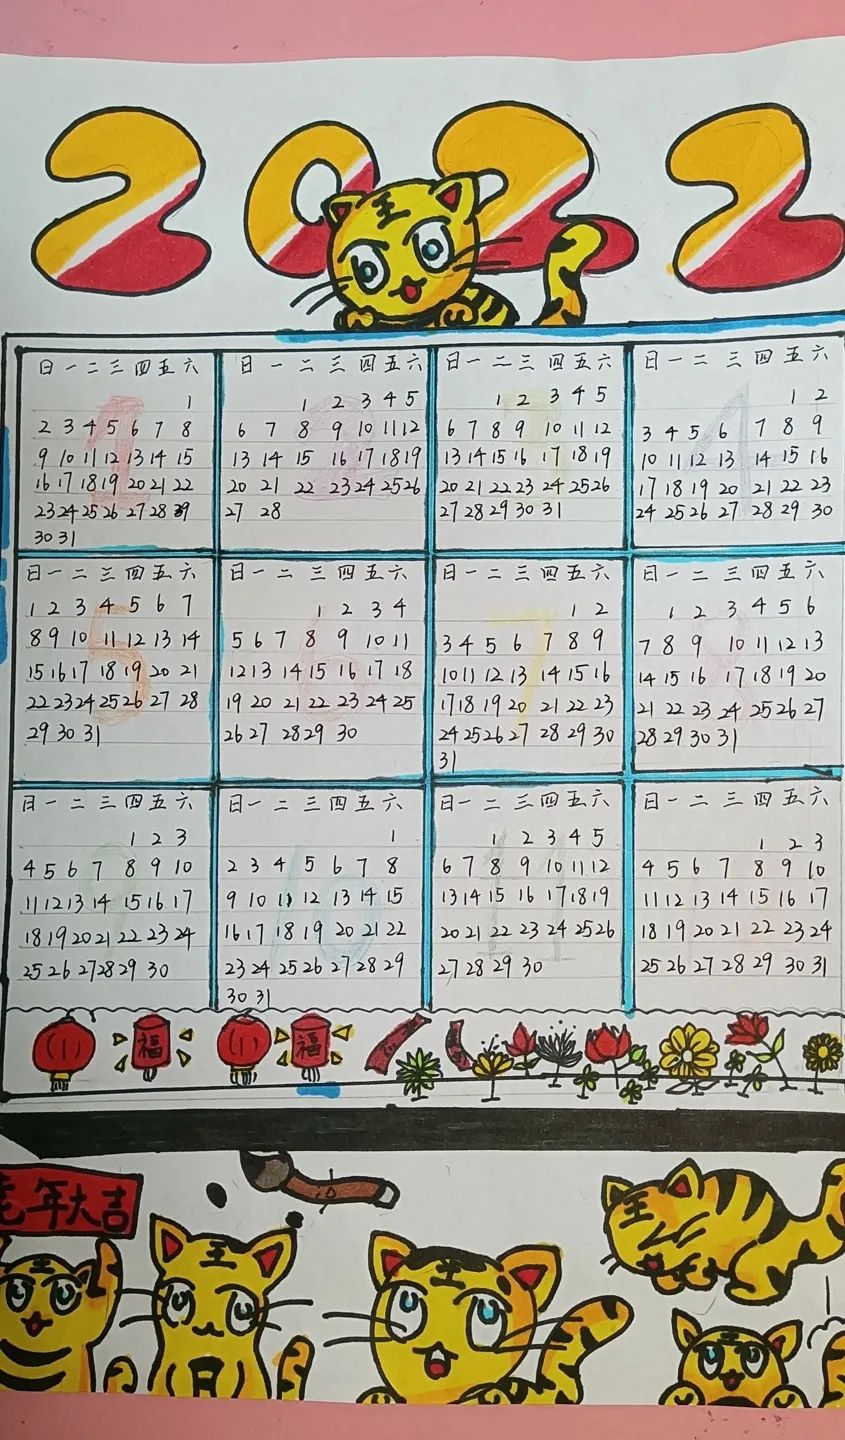 2022
王
日 一 二 三 四 五 六
1
2 3 4 5 6 7 8
9 10 11 12 13 14 15
16 17 18 19 20 21 22
23 24 25 26 27 28 29
30 31
1
日 一 二 三 四 五 六
1 2 3 4 5
6 7 8 9 10 11 12
13 14 15 16 17 18 19
20 21 22 23 24 25 26
27 28
2
日 一 二 三 四 五 六
1 2 3 4 5
6 7 8 9 10 11 12
13 14 15 16 17 18 19
20 21 22 23 24 25 26
27 28 29 30 31
3
日 一 二 三 四 五 六
1 2
3 4 5 6 7 8 9
10 11 12 13 14 15 16
17 18 19 20 21 22 23
24 25 26 27 28 29 30
4
日 一 二 三 四 五 六
1 2 3 4 5 6 7
8 9 10 11 12 13 14
15 16 17 18 19 20 21
22 23 24 25 26 27 28
29 30 31
5
日 一 二 三 四 五 六
1 2 3 4
5 6 7 8 9 10 11
12 13 14 15 16 17 18
19 20 21 22 23 24 25
26 27 28 29 30
6
日 一 二 三 四 五 六
1 2
3 4 5 6 7 8 9
10 11 12 13 14 15 16
17 18 19 20 21 22 23
24 25 26 27 28 29 30
31
7
日 一 二 三 四 五 六
1 2 3 4 5 6
7 8 9 10 11 12 13
14 15 16 17 18 19 20
21 22 23 24 25 26 27
28 29 30 31
8
日 一 二 三 四 五 六
1 2 3
4 5 6 7 8 9 10
11 12 13 14 15 16 17
18 19 20 21 22 23 24
25 26 27 28 29 30
9
日 一 二 三 四 五 六
1
2 3 4 5 6 7 8
9 10 11 12 13 14 15
16 17 18 19 20 21 22
23 24 25 26 27 28 29
30 31
10
日 一 二 三 四 五 六
1 2 3 4 5
6 7 8 9 10 11 12
13 14 15 16 17 18 19
20 21 22 23 24 25 26
27 28 29 30
11
日 一 二 三 四 五 六
1 2 3
4 5 6 7 8 9 10
11 12 13 14 15 16 17
18 19 20 21 22 23 24
25 26 27 28 29 30 31
福
福
虎年大吉
王
王
王
王